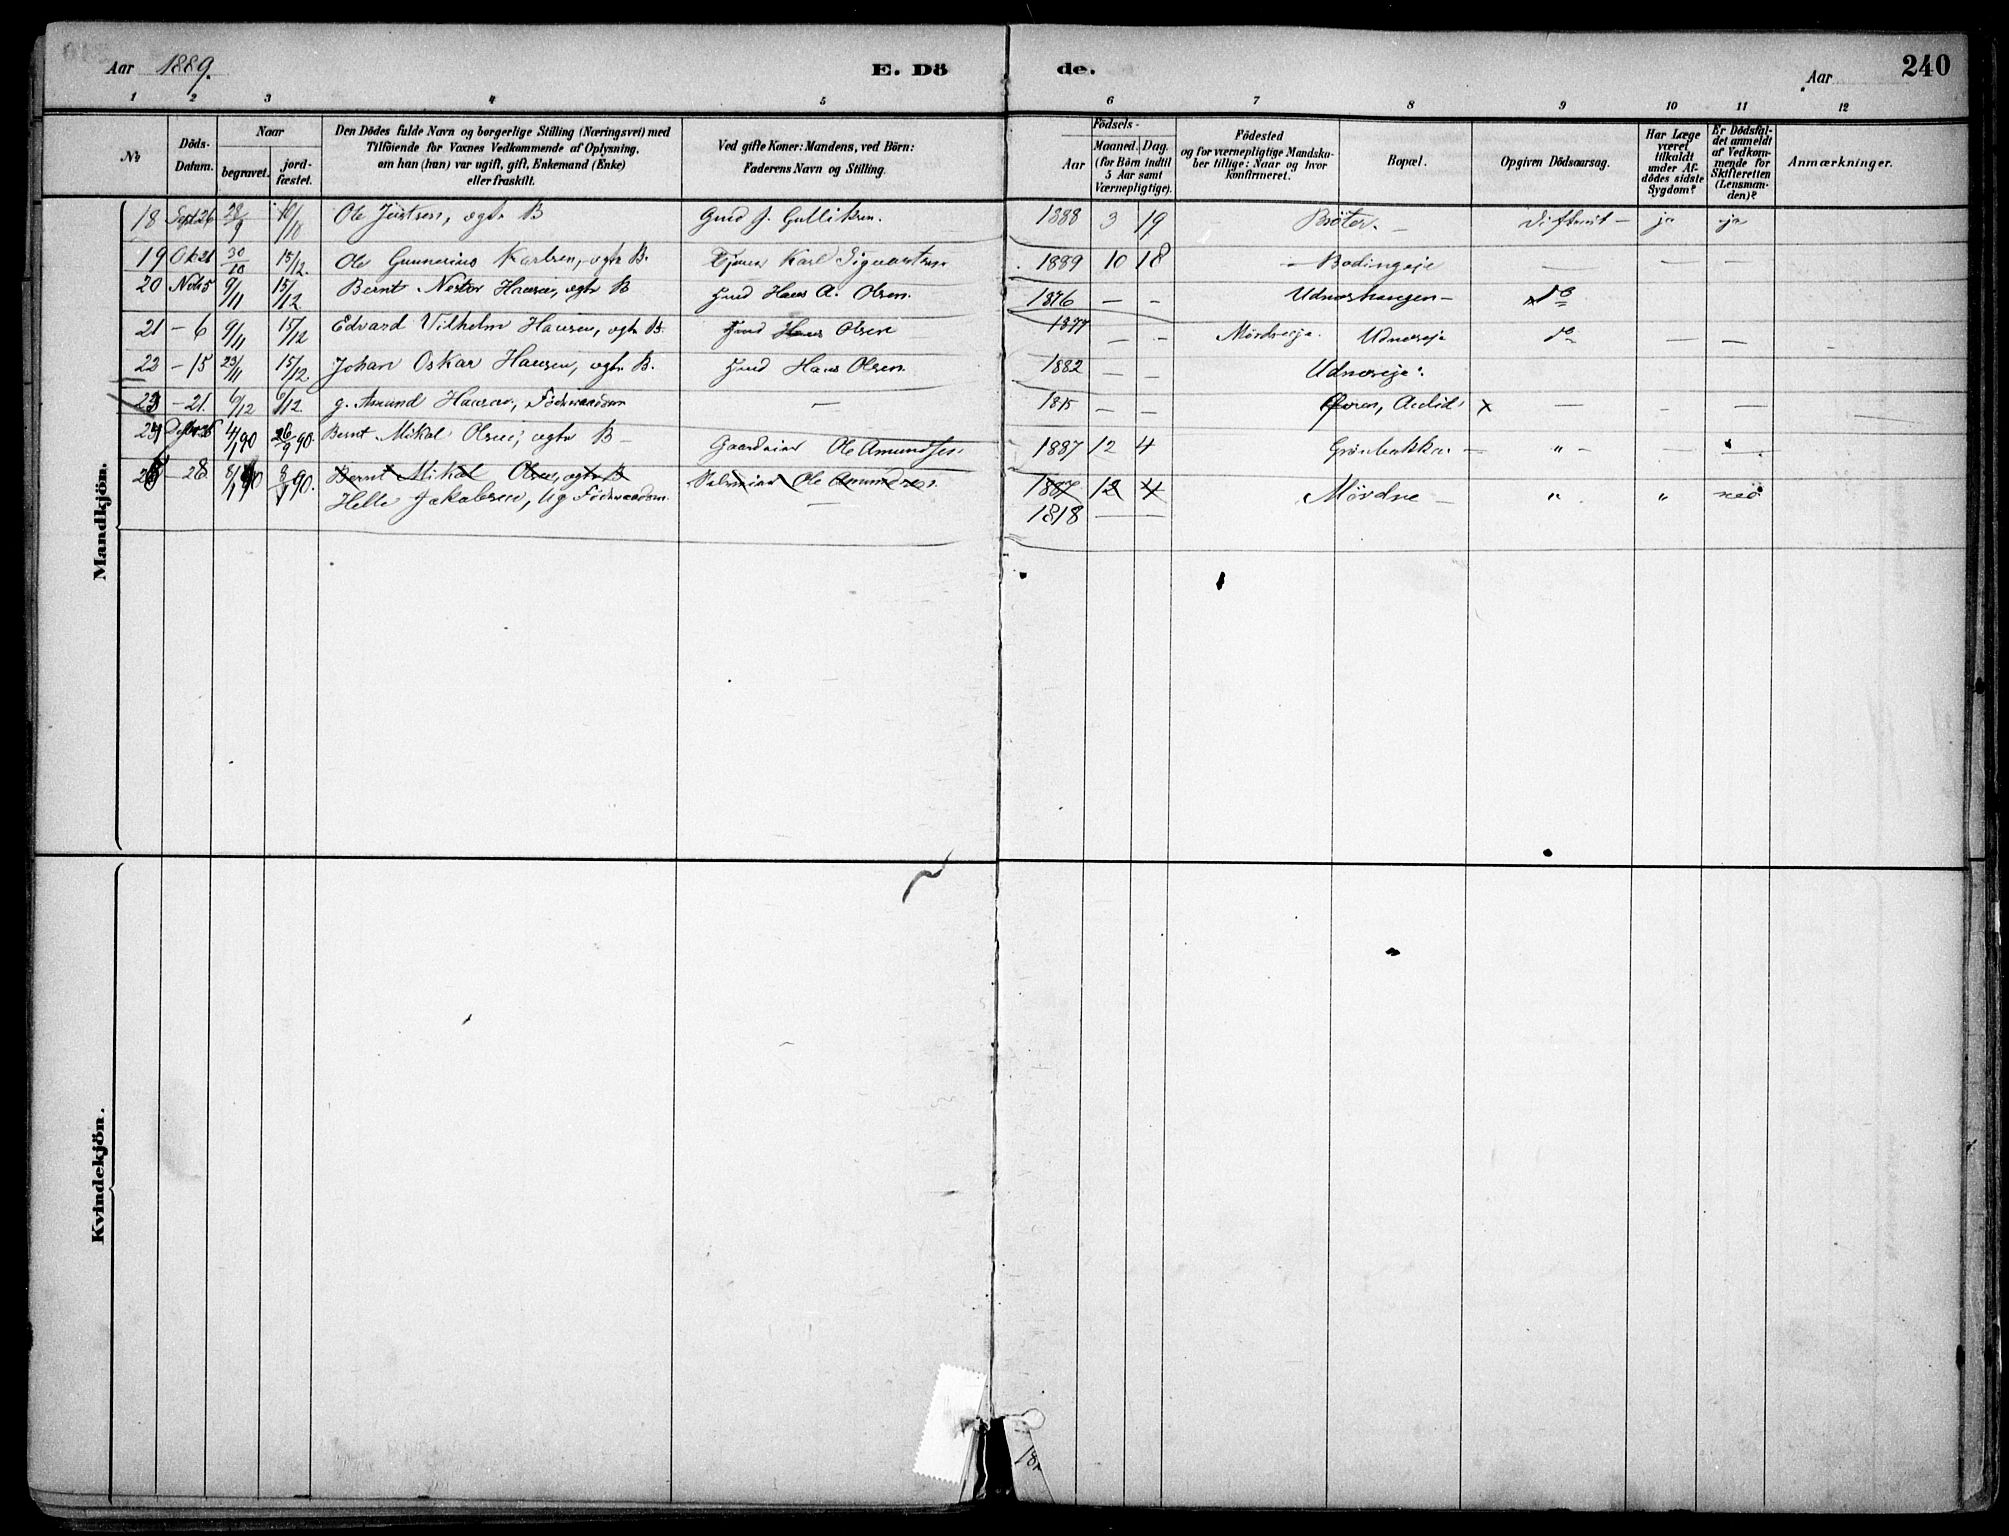 Aar 1889.
E. Dö
de.
Aar
240
1 2 3 4 5 6 7 8 9 10 11 12
No
Döds-
Datum.
Naar
begravet.
jord-
fæstet.
Den Dödes fulde Navn og borgerlige Stilling (Næringsvei) med
Tilföiende for Voxnes Vedkommende af Oplysning,
om han (hun) var ugift, gift, Enkemand (Enke)
eller fraskilt.
Ved gifte Koner: Mandens, ved Börn:
Faderens Navn og Stilling.
Födsels-
Aar
Maaned. Dag.
(for Börn indtil
5 Aar samt
Værnepligtige).
Födested
og for værnepligtige Mandska-
ber tillige: Naar og hvor
konfirmeret.
Bopæl.
Opgiven Dödsaarsag.
Har Læge
været
tilkaldt
under Af-
dödes sidste
Sygdom?
Er Dödsfal-
det anmeldt
af Vedkom-
mende for
Skifteretten
(Lensman-
den)?
Anmærkninger.
Mandkjön.
18 Sept 26 28/9 10/10 Ole Justsen, ægte B Gmd J. Gulliksen. 1888 3 19 Bröter. Difterit ja
19 Ok 21 30/10 15/12. Ole Gunnerius Karlsen, ægte B. Tjener Karl 1889 10 18
20 5 9/11 15/12 Bernt Hansen, ægte B Hans A. Olsen. 1876 — — Udneshaugen do
21 – 6 9/11 15/12 Edvard Vilhelm Hansen, ægte B. Hans Olsen 1877 — — Udneseje do
22 – 15 23/11 15/12. Johan Oskar Hansen, ægte B. Hans Olsen. 1882 — — Udneseje.
23 – 21. 6/12 6/12. g. Amund Hansen, Föderaadsm — 1815 — —
4/1 90 26/9 90. Bernt Mikal Olsen, ægte B Gaardeier Ole Amundsen. 1887 12 4 "
– 28 8/1 90 8/1 90. Bernt Mikal Olsen, ægte B Ole Amundsen. 1887 12 4
Helle Jakobsen, Ug Föderaadsm. — 1818 — — Mördre " "
Kvindekjön.